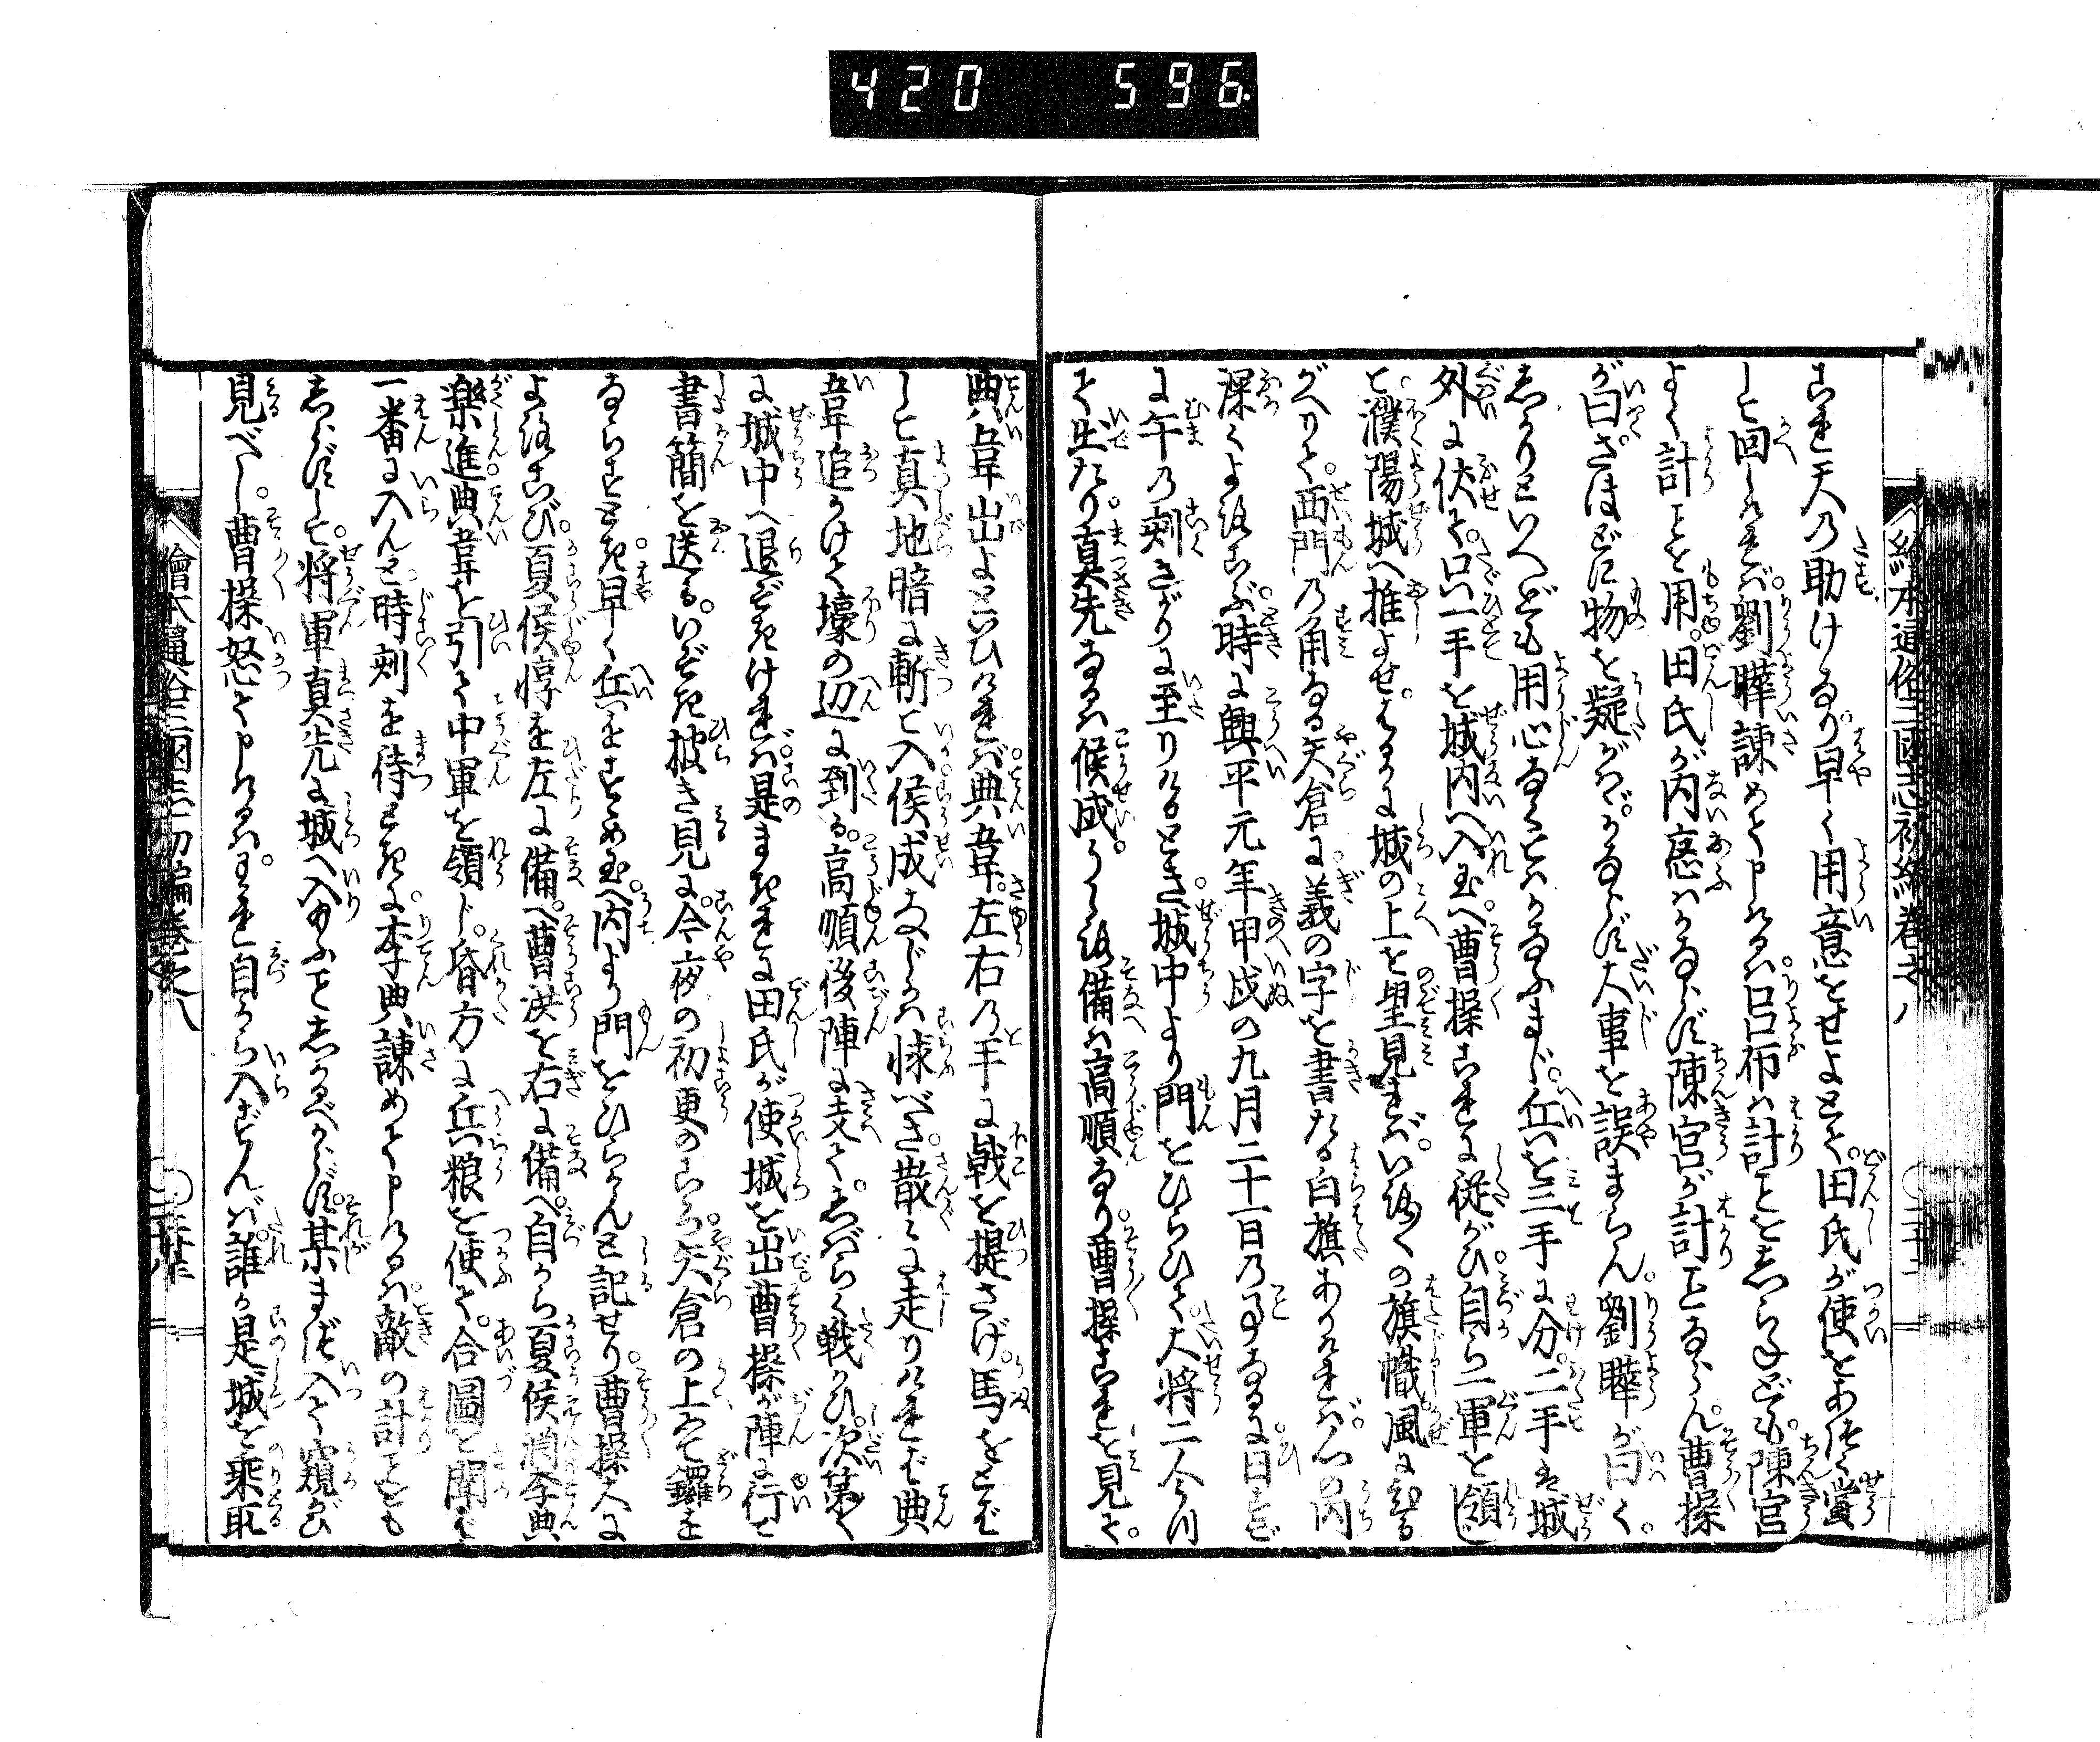 420 596
繪本通俗三國志初編巻之八
これ天の助けなり早く用意をせよとて田氏が使をあつく賞
して回しければ劉曄諌めて申けるは呂布は計ことをしらねども陳宮
よく計ことを用田氏が内應はかならず陳宮が計ことならん曹操
が曰さほどに物を疑がはゞかならず大事を誤まらん劉曄が曰く
しかりといへども用心なくてはかなふまじ兵を三手に分二手を城
外に伏て只一手を城内へ入玉へ曹操これに従がひ自ら三軍を領し
て濮陽城へ推よせはるかに城の上を望見れば いろくの旗幟風に
がへりて西門の角なる矢倉に義の字を書たる白旗ありければ心の内
深くよろこぶ時に興平元年甲戌の九月二十一日の事なるに日すで
に午の刻さがりに至りけるとき城中より門をひらひて大将二人打
て出たり真先なるは候成うしろ備は高順なり曹操これを見て
典韋出よといひければ典韋左右の手に戟を提さげ馬をとば
して真地暗に斬て入候成なじかは悚べき散々に走りければ典
韋追かけて壕の辺に到る高順後陣に支てしばらく戦かひ次第く
に城中へ退ぞきければ是まぎれに田氏が使城を出曹操が陣に行て
書簡を送るいそぎ披き見に今夜の初更のころ矢倉の上にて鑼を
ならすとき早く兵をすゝめ玉へ内より門をひらかんと記せり曹操大に
よろこび夏侯惇を左に備へ曹洪を右に備へ自から夏侯淵李典
楽進典韋を引て中軍を領じ昏方に兵粮を使て合圖を聞ば
一番に入んと時刻を待ときに李典諌めて申けるは敵の計ことも
しらずして将軍真先に城へ入給ふことしかるべからず某まづ入て窺がひ
見べし曹操怒て申けるはわれ自から入ずんば誰か是城を乗取
繪本通俗三國志初編巻之八